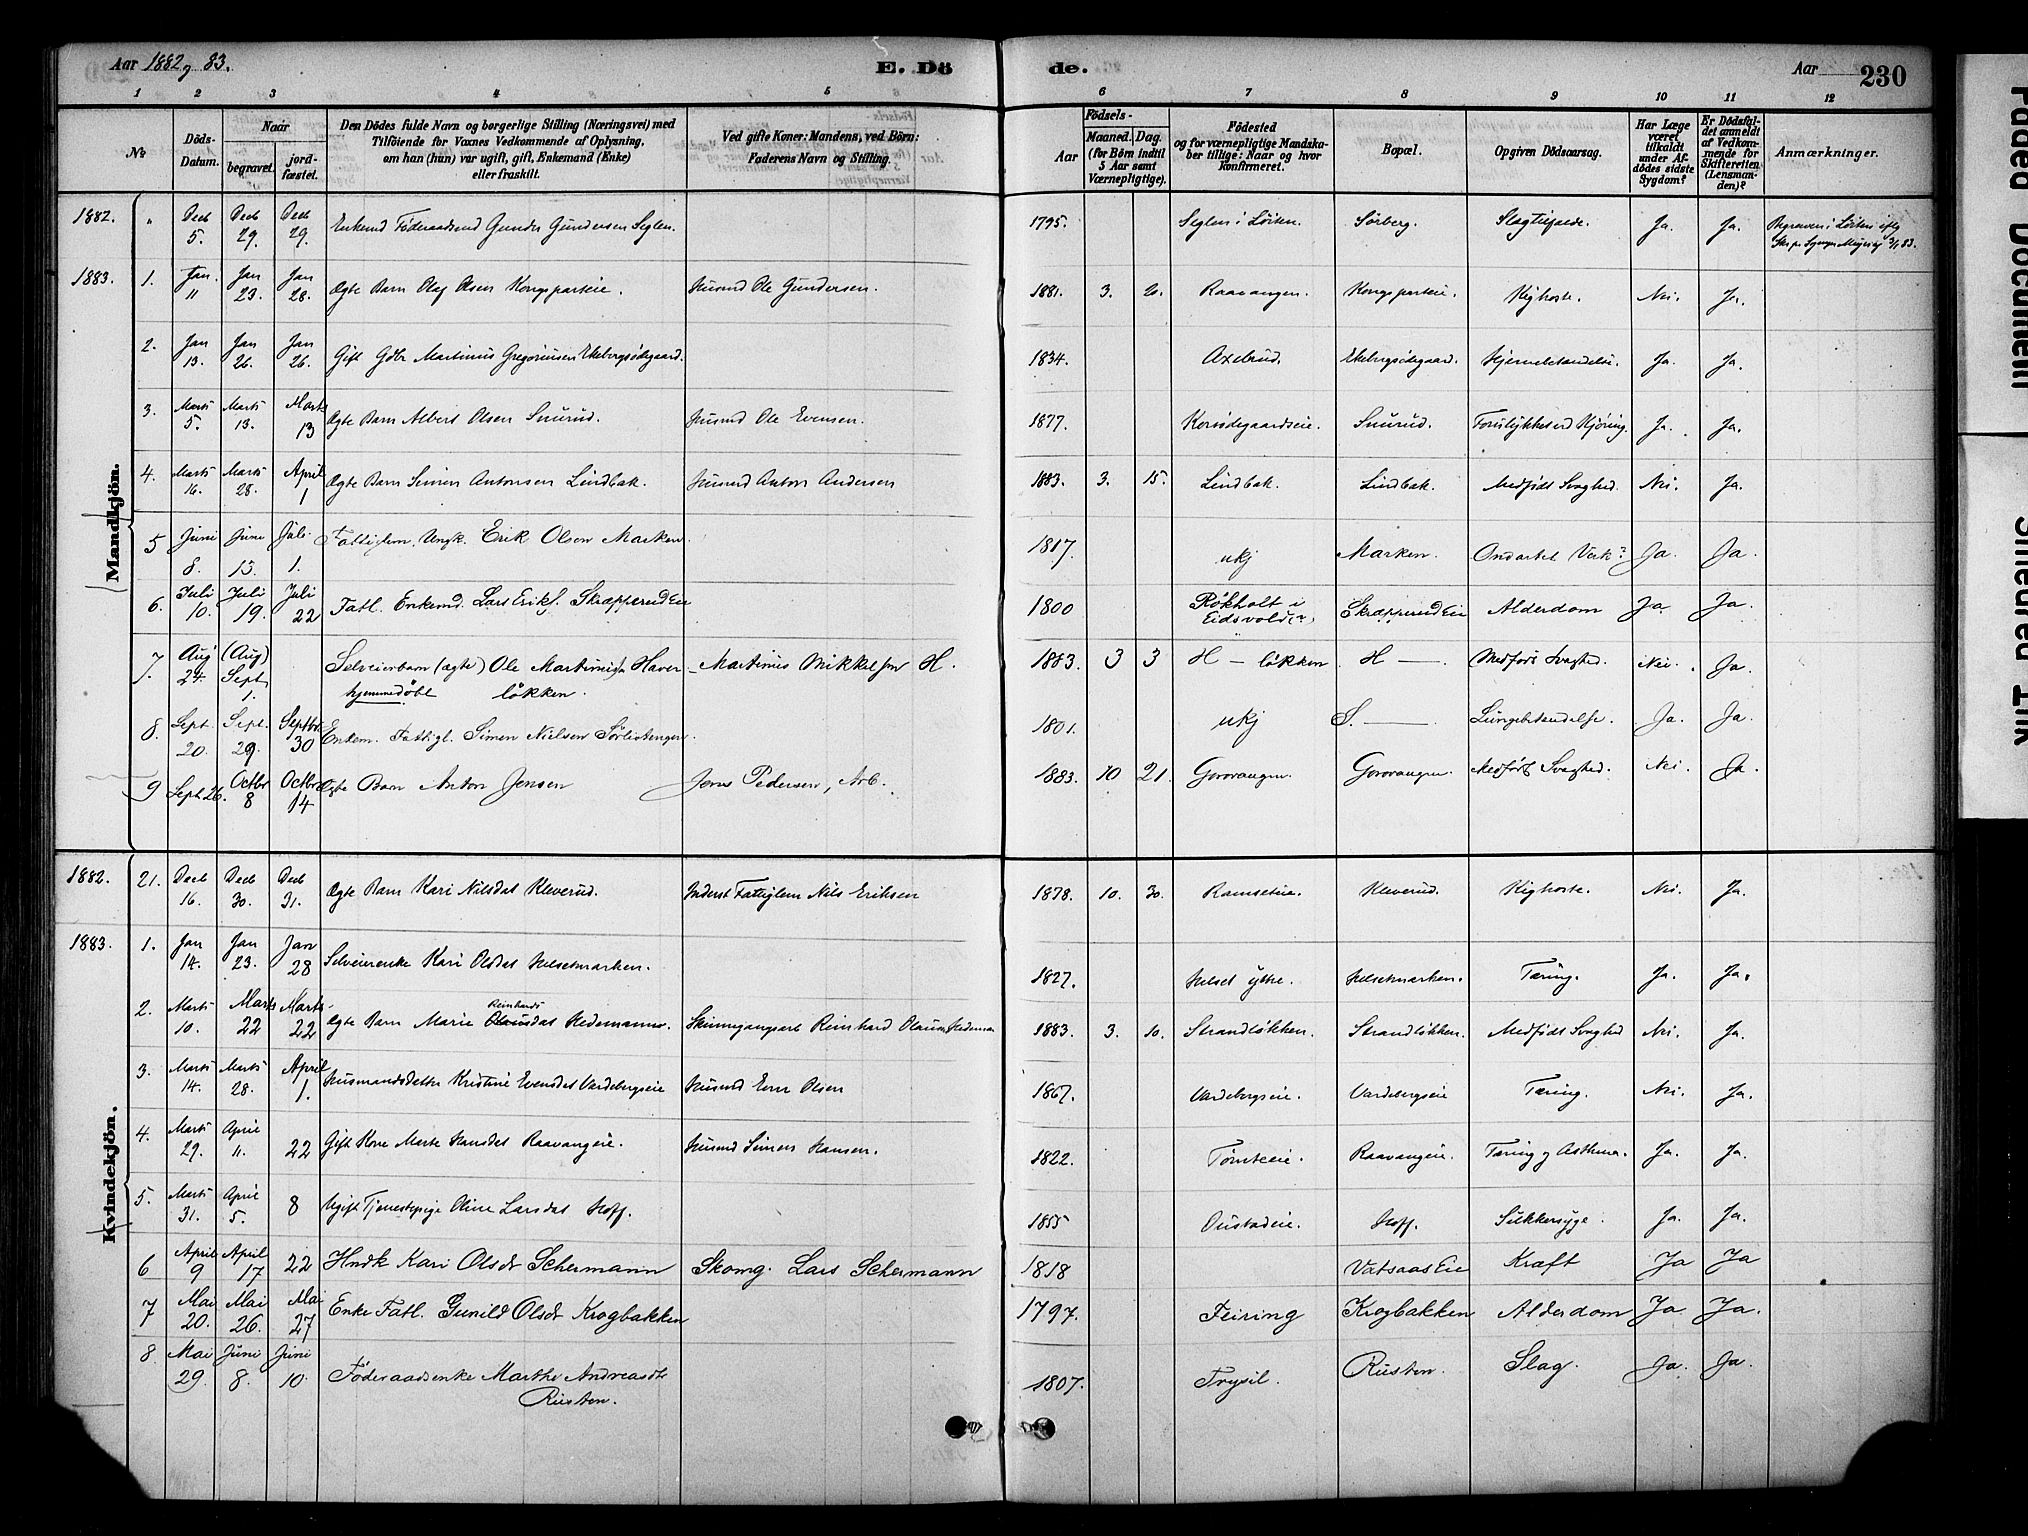 Aar 1882 og 83.
E. Dö de.
Aar 230
1 2 3 4 5 6 7 8 9 10 11 12
№ Döds-Datum. Naar begravet. jord-fæstet. Den Dödes fulde Navn og borgerlige Stilling (Næringsvei) med Tilföiende for Vaxnes Vedkommende af Oplysning, om han (hun) var ugift, gift, Enkemand (Enke) eller fraskilt. Ved gifte Koner: Mandens, ved Börn: Faderens Navn og Stilling. Aar Födsels- Maaned. Dag. (for Börn indtil 5 Aar samt Værnepligtige). Födested og for værnepligtige Mandskaber tillige: Naar og hvor konfirmeret. Bopæl. Opgiven Dödsaarsag. Har Læge været tilkaldt under Afdödes sidste Sygdom? Er Dödsfaldet anmeldt af Vedkommende for Skifteretten (Lensmanden)? Anmærkninger.
Mandkjön.
1882. " Decb 5. Decb 29. Decb 29. Enkemd Föderaadsmd Gunder Gundersen Seglen. 1795. Seglen i Löiten. Sörberg. Slagtilfælde. Ja. Ja. Begraven i Löiten
1883. 1. Jan 11 Jan 23. Jan 28. Ægte Barn Olaf Olsen Kongsparteie. Husmd Ole Gundersen. 1881. 3. 20. Raavangen. Kongsparteie. Kighoste. Nei. Ja.
2. Jan 13. Jan 26. Jan 26. Gift Gdbr Martinus Gregoriusen Ekebergsødegaard. 1834. Axelrud. Ekebergsødegaard. Hjernebetændelse. Ja. Ja.
3. Marts 5. Marts 13. Marts 13 Ægte Barn Albert Olsen Snurud. Husmd Ole Evensen. 1877. Korsødegaardseie. Snurud. Forulykket ved Kjöring. Ja. Ja.
4. Marts 16. Marts 28. April 1 Ægte Barn Simen Antonsen Lindbak. Husmd Anton Andersen 1883. 3. 15. Lindbak. Lindbak. Medfödt Svaghed. Nei. Ja.
5 Juni 8. Juni 13. Juli 1. Fattiglem. Ungk. Erik Olsen Marken. 1817. ukj Marken. Ondartet Værk? Ja. Ja.
6. Juli 10. Juli 19. Juli 22 Fatl. Enkemd. Lars Eriks. SkræpperudEie 1800 Røkholt i Eidsvold(?) SkræpperudEie Alderdom Ja Ja.
7. Aug 24. (Aug) Sept 1. Selveierbarn (ægte) Ole Martinsen Haver- Martinus Mikkelsen H. 1883. 3 3 H — løkken H — . Medfödt Svaghed. Nei. Ja.
hjemmedøbt løkken.
8. Sept. 20. Sept. 29. Septbr. 30 Enkem. Fattigl. Simen Nielsen Sörlistengen. 1801. ukj S. — . Lungebetændelse. Ja. Ja.
9 Sept 26. Octbr 8 Octbr 14 Ægte Barn Anton Jensen Jens Pedersen, Arb. 1883. 10 21. Gorovangen. Gorovangen. Medfödt Svaghed. Nei. Ja.
Kvindekjön.
1882. 21. Decb 16. Decb 30. Decb 31. Ægte Barn Kari Nilsdat Kleverud. Inderst Fattiglem Nils Eriksen 1878. 10. 30. Ramseteie. Kleverud. Kighoste. Nei. Ja.
1883. 1. Jan 14. Jan 23. Jan 28 Selveierenke Kari Olsdat Helsetmarken. 1827. Helset ytre. Helsetmarken. Tæring. Ja. Ja.
2. Marts 10. Marts 22 Marts 22 Ægte Barn Marie Reinhards Olausdat Hedemann. Reinhard Olausen Hedeman 1883. 3. 10. Strandløkken. Strandløkken. Medfödt Svaghed Nei. Ja.
3. Marts 14. Marts 28. April 1. Husmandsdatter Kristine Evensdat Vardebergseie Husmd Even Olsen 1867. Vardebergseie. Vardebergseie Tæring. Nei. Ja.
4. Marts 29. April 11. 22 Gift Kone Marte Hansdat Raavangeie. Husmd Simen Hansen. 1822. Tömteeie. Raavangeie. Tæring og Asthma. Ja. Ja.
5. Marts 31. April 5. 8 Ugift Tjenestepige Oline Larsdat Hoff. 1855 Oustadeie. Hoff. Sukkersyge. Ja. Ja.
6 April 9 April 17 22 Hmdk Kari Olsdt Schermann Skomg. Lars Schermann 1818 VatsaasEie Kræft Ja Ja
7 Mai 20. Mai 26. Mai 27 Enke Fatl. Gunild Olsdt Krogbakken 1797. Feiring Krogbakken Alderdom Ja Ja.
8. Mai 29. Juni 8. Juni 10. Föderaadsenke Marthe Andreasdt 1807. Trysil. Rusten. Slag. Ja. Ja.
Rusten.